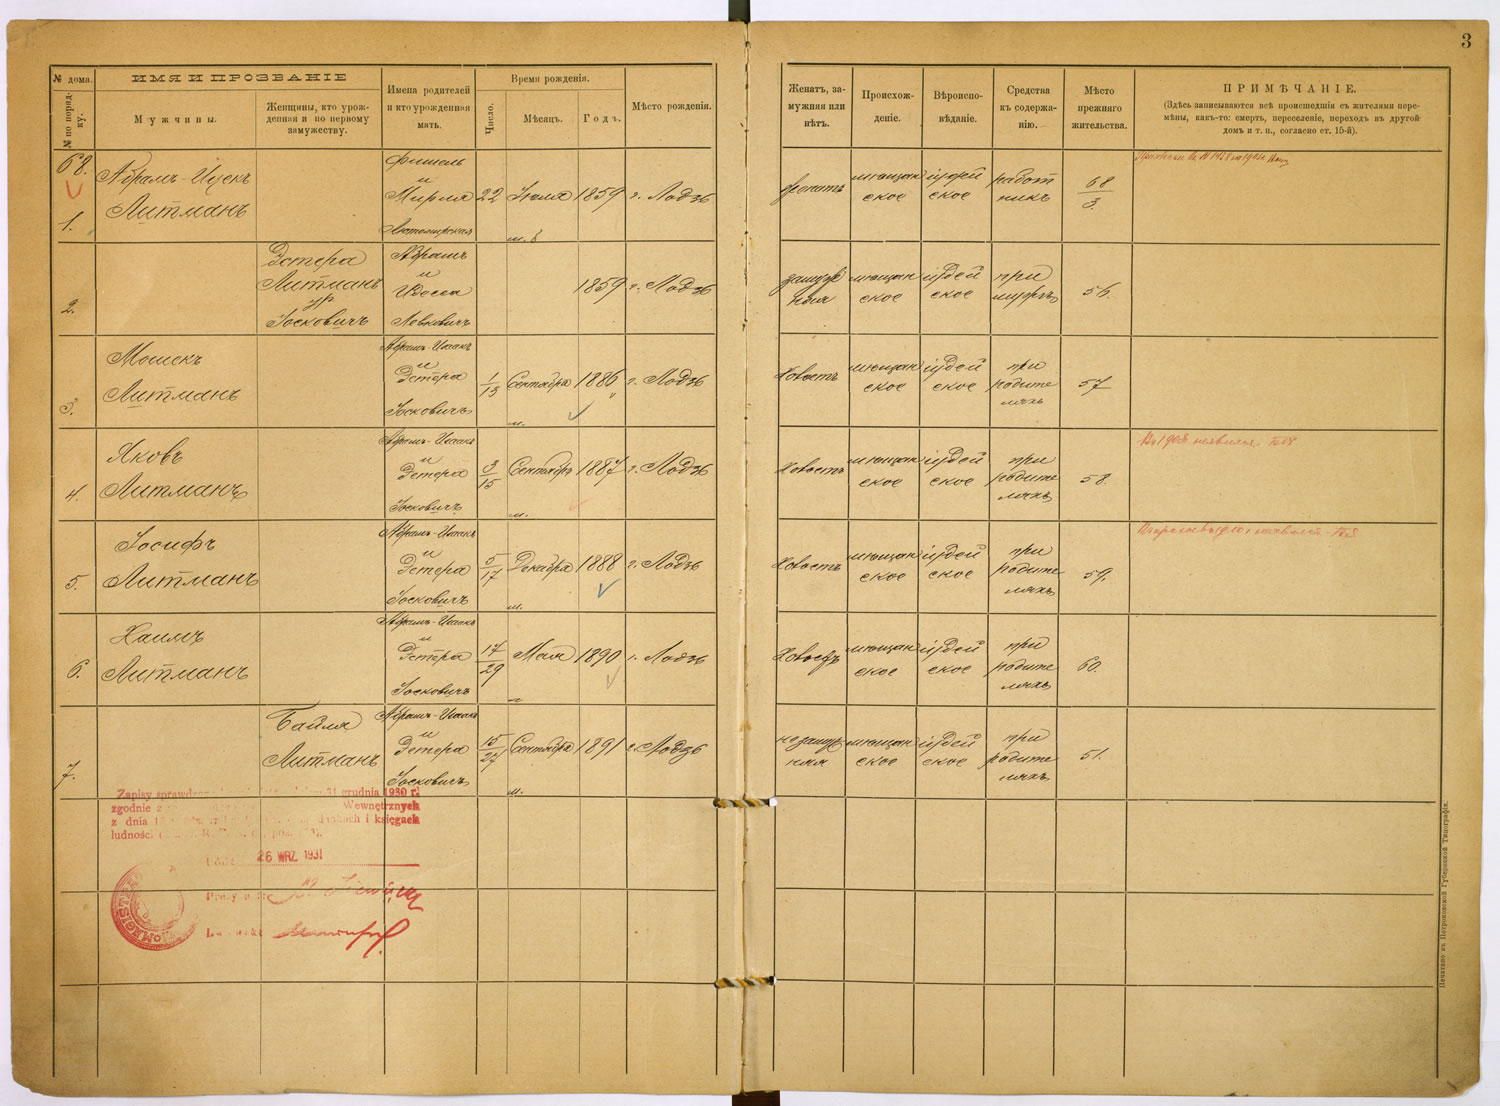 3
№ дома.
№ по поряд-
ку.
ИМЯ И ПРОЗВАНІЕ
Мужчины.
Женщины, кто урож-
денная и по первому
замужеству.
Имена родителей
и кто урожденная
мать.
Время рожденія.
Число.
Мѣсяцъ.
Годъ.
Мѣсто рожденія.
Женатъ, за-
мужняя или
нѣтъ.
Происхож-
деніе.
Вѣроиспо-
вѣданіе.
Средства
къ содержа-
нію.
Мѣсто
прежняго
жительства.
ПРИМѢЧАНІЕ.
(Здѣсь записываются всѣ происшедшія съ жителями пере-
мѣны, какъ-то: смерть, переселеніе, переходъ въ другой
домъ и т. п., согласно ст. 15-й).
68.
1.
Абрамъ-Ицекъ
Литманъ
Фишель
и
Мирля
22
Іюля
1859
г. Лодзь
женатъ
мѣщан
ское
іудей
ское
работ
никъ
68
3.
2.
Эстера
Литманъ
ур
Іосковичъ
Абрамъ
и
Левковичъ
1859
г. Лодзь
замуж
няя
мѣщан
ское
іудей
ское
при
мужѣ
56.
3.
Мошекъ
Литманъ
Абрамъ-Ицекъ
и
Эстера
Іосковичъ
1
13
Сентября
1886
г. Лодзь
Холостъ
мѣщан
ское
іудей
ское
при
родите
ляхъ
57
4.
Яковъ
Литманъ
Абрамъ-Ицекъ
и
Эстера
Іосковичъ
3
15
Сентября
1887
г. Лодзь
Холостъ
мѣщан
ское
іудей
ское
при
родите
ляхъ
58.
5.
Іосифъ
Литманъ
Абрамъ-Ицекъ
и
Эстера
Іосковичъ
5
17
Декабря
1888
г. Лодзь
Холостъ
мѣщан
ское
іудей
ское
при
родите
ляхъ
59.
6.
Хаимъ
Литманъ
Абрамъ-Ицекъ
и
Эстера
Іосковичъ
17
29
Мая
1890
г. Лодзь
Холостъ
мѣщан
ское
іудей
ское
при
родите
ляхъ
60.
7.
Байля
Литманъ
Абрамъ-Ицекъ
и
Эстера
Іосковичъ
15
27
Сентября
1891
г. Лодзь
незамуж
няя
мѣщан
ское
іудей
ское
при
родите
ляхъ
51.
Zapisy sprawdzono 31 grudnia 1930 r.
zgodnie z Wewnętrznych
z dnia i księgach
ludności
26 WRZ. 1931
Печатано въ Петроковской Губернской Типографіи.